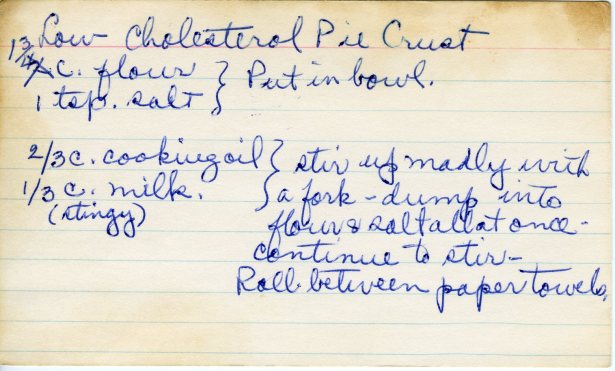 Low Cholesterol Pie Crust
1 3/4 c. flour } Put in bowl.
1 tsp. salt
2/3 c. cooking oil } stir up madly with
1/3 c. milk. a fork - dump into
(stingy) flour & salt all at once -
continue to stir -
Roll between paper towels.